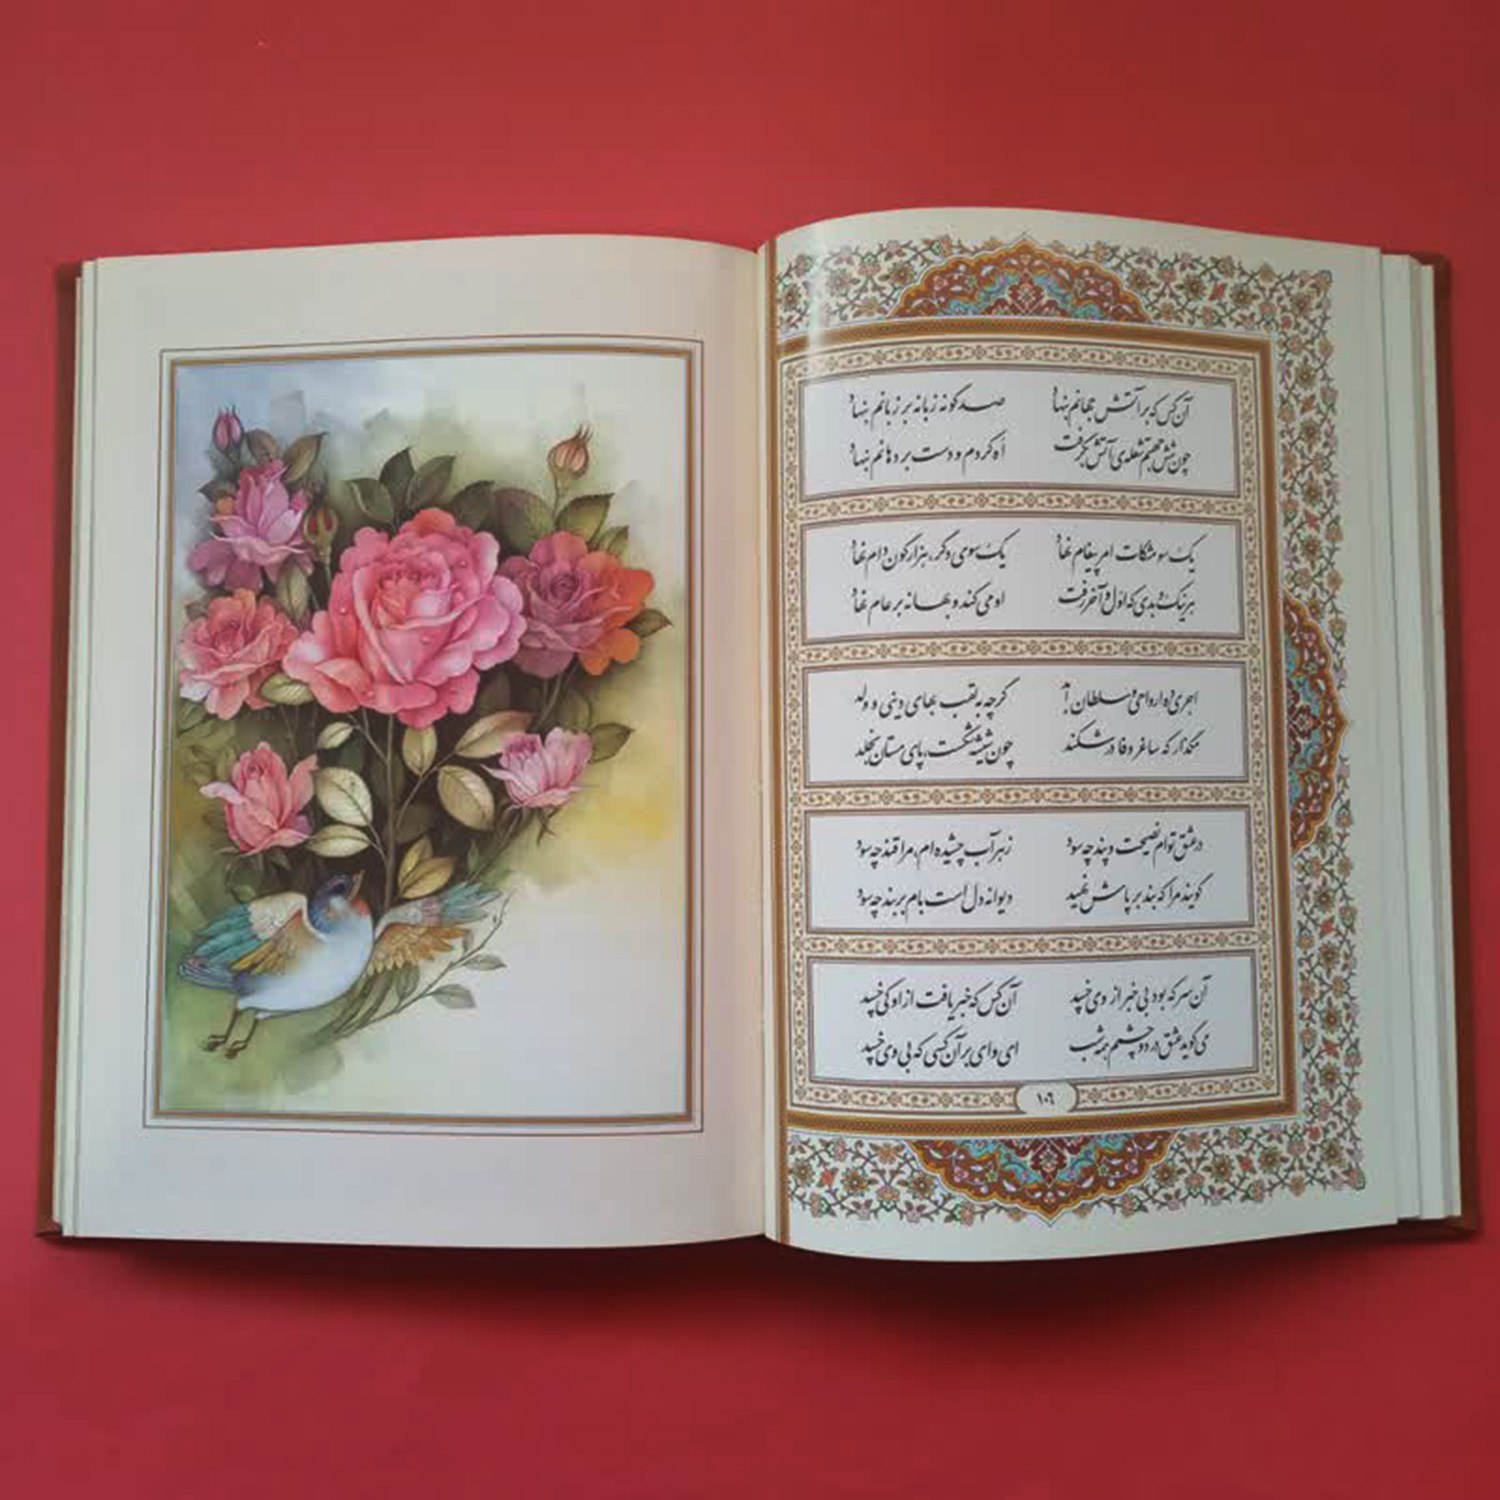 آن کس که بر آتش جهانم بنهاد صد گونه زبانه بر زبانم بنهاد
چون شش جهتم شعله‌ی آتش بگرفت آه کردم و دست بر دهانم بنهاد
یک سو مشکات امر پیغام نهاد یک سوی دگر، هزار گون دام نهاد
هر نیک و بدی که اول و آخر رفت او می کند و بهانه بر عام نهاد
اجری ده ارواحی و سلطان ابد گرچه به لقب بهای دینی و ولد
مگذار که ساغر وفا در شکند چون شیشه شکست، پای مستان بخلد
در عشق توام نصیحت و پند چه سود زهرآب چشیده ام، مرا قند چه سود
گویند مرا که بند بر پاش نهید دیوانه دل است پام بر بند چه سود
آن سر که بود بی خبر از وی خسبد آن کس که خبر یافت از او کی خسبد
می گوید عشق در دو چشمم همه شب ای وای بر آن کسی که بی وی خسبد
۱۰۶